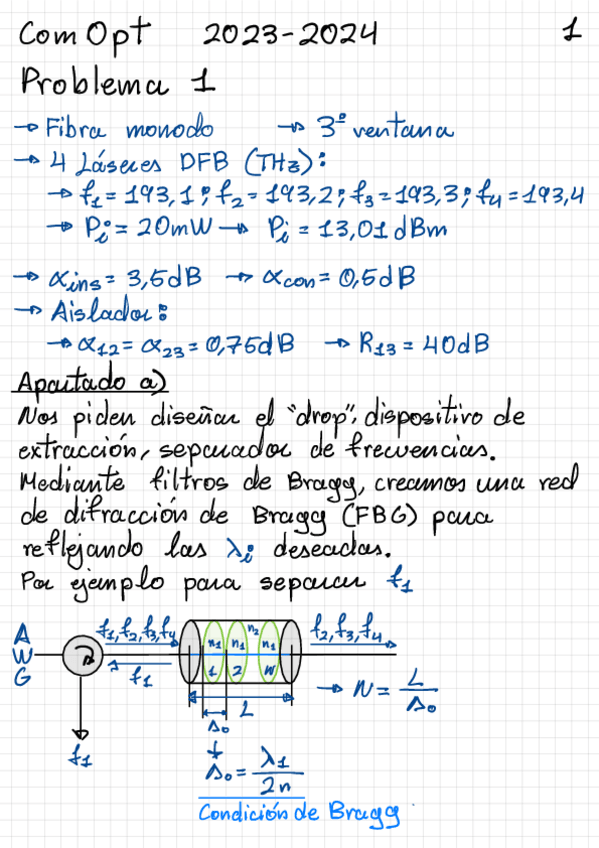 Com Opt 2023-2024 1
Problema 1
→ Fibra monodo → 3ª ventana
→ 4 Láseres DFB (THz):
→ f₁ = 193,1; f₂ = 193,2; f₃ = 193,3; f₄ = 193,4
→ Pᵢ = 20mW → Pᵢ = 13,01 dBm
→ αins = 3,5dB → αcon = 0,5dB
→ Aislador:
→ α₁₂ = α₂₃ = 0,75dB → R₁₃ = 40dB
Apartado a)
Nos piden diseñar el "drop", dispositivo de
extracción, separador de frecuencias.
Mediante filtros de Bragg, creamos una red
de difracción de Bragg (FBG) para
reflejando las λᵢ deseadas.
Por ejemplo para separar f₁
AWG
f₁, f₂, f₃, f₄
f₁
n₁ n₁ n₂ n₁
1 2 N
f₂, f₃, f₄
→ N = L/Λ₀
L
Λ₀
f₁
Λ₀ = λ₁/2n
Condición de Bragg